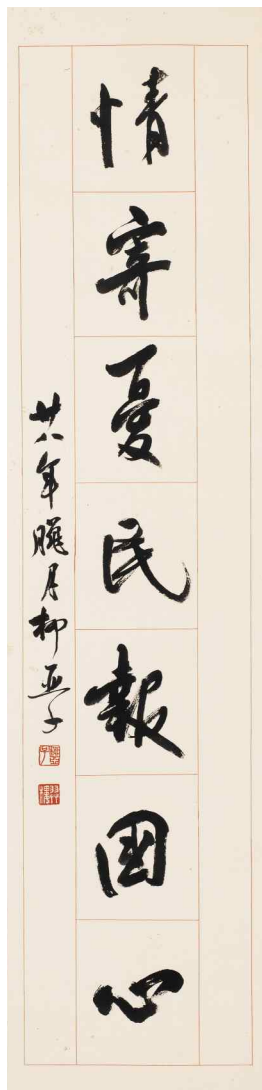 情寄憂民報國心
廿八年臘月柳亞子